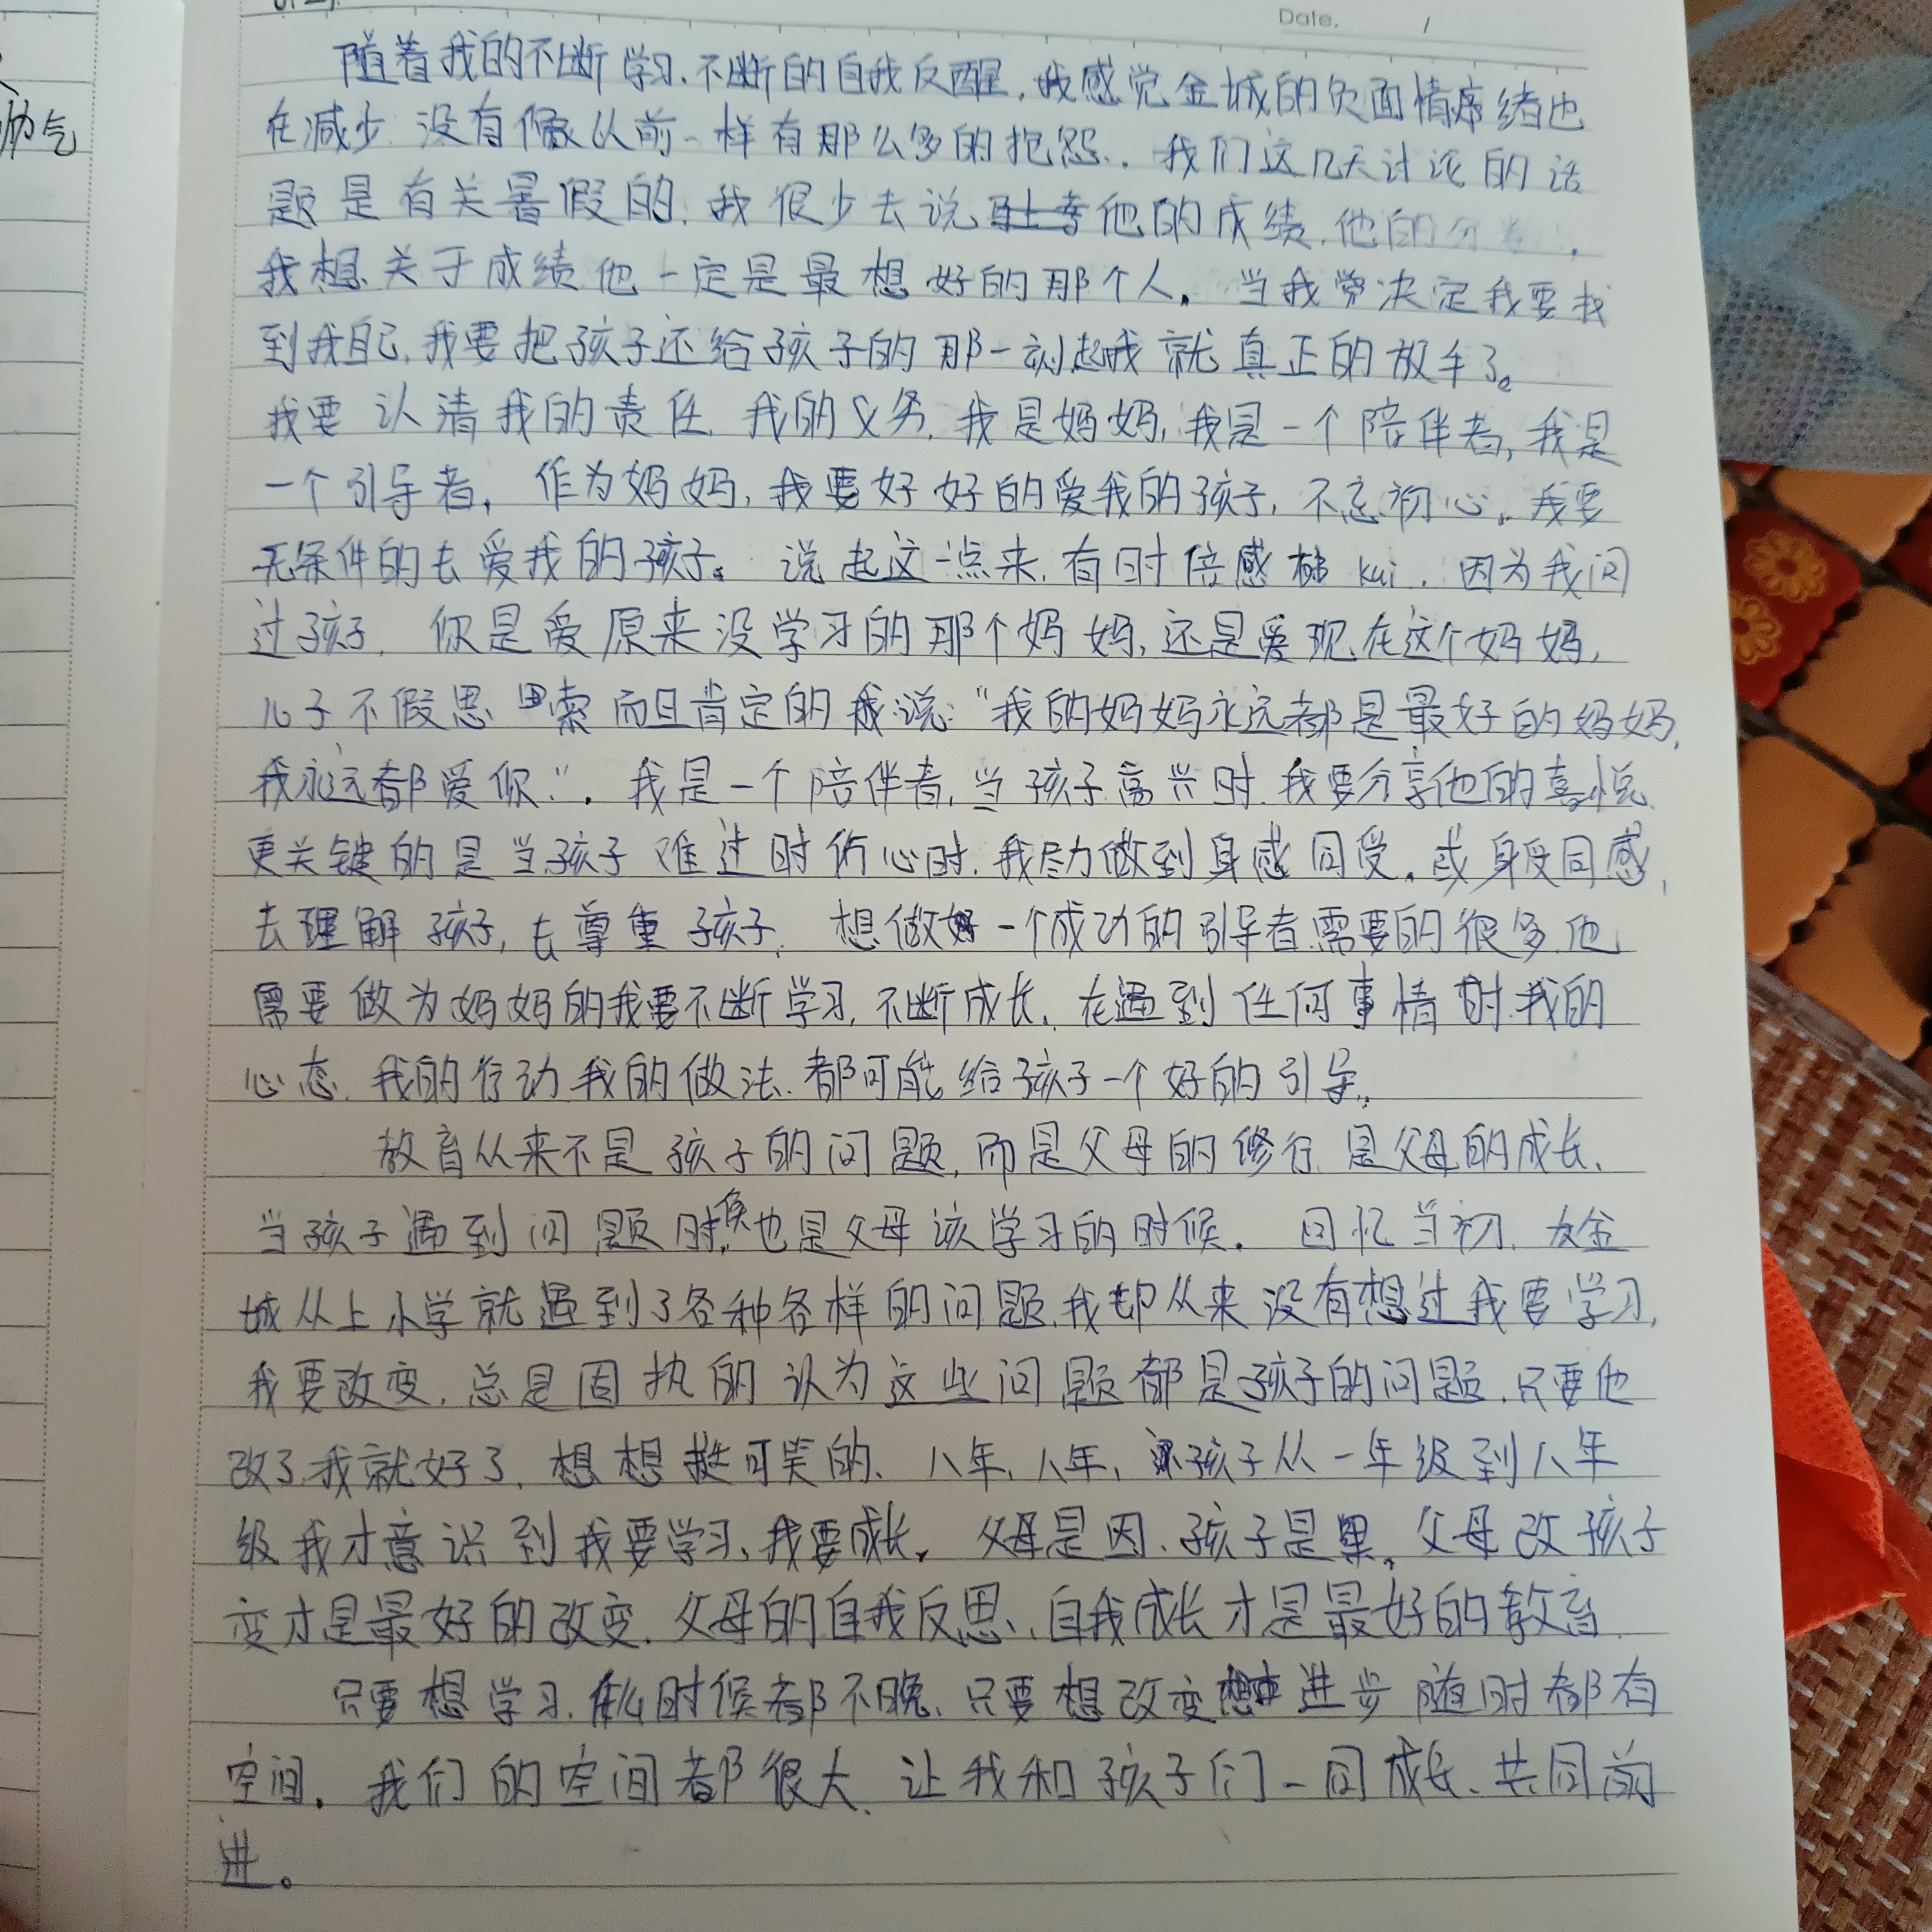 Date. /
帅气
随着我的不断学习、不断的自我反醒,我感觉金城的负面情绪也
在减少.没有像从前一样有那么多的抱怨.我们这几天讨论的话
题是有关暑假的,我很少去说他的成绩,他的分
我想关于成绩他一定是最想好的那个人。当我决定我要找
到我自己,我要把孩子还给孩子的那一刻起我就真正的放手了。
我要认清我的责任,我的义务,我是妈妈,我是一个陪伴者,我是
一个引导者。作为妈妈,我要好好的爱我的孩子,不忘初心,我要
无条件的去爱我的孩子。说起这一点来,有时倍感 kui.因为我问
过孩子,你是爱原来没学习的那个妈妈,还是爱现在这个妈妈,
儿子不假思索而且肯定的说:“我的妈妈永远都是最好的妈妈,
我永远都爱你”.我是一个陪伴者,当孩子高兴时,我要分享他的喜悦
更关键的是当孩子难过时伤心时,我尽力做到身感同受,或身受同感,
去理解孩子,去尊重孩子,想做好一个成功的引导者需要的很多,他
需要做为妈妈的我要不断学习,不断成长.在遇到任何事情时我的
心态,我的行动我的做法.都可能给孩子一个好的引导.
教育从来不是孩子的问题,而是父母的修行是父母的成长、
当孩子遇到问题时候也是父母该学习的时候.回忆当初,金
城从上小学就遇到了各种各样的问题,我却从来没有想过我要学习,
我要改变,总是固执的认为这些问题都是孩子的问题,只要他
改了我就好了,想想挺可笑的、八年,八年,孩子从一年级到八年
级我才意识到我要学习,我要成长。父母是因、孩子是果。父母改孩子
变才是最好的改变.父母的自我反思、自我成长才是最好的教育
只要想学习,什么时候都不晚、只要想改变想进步随时都有
空间.我们的空间都很大、让我和孩子们一同成长、共同前
进。